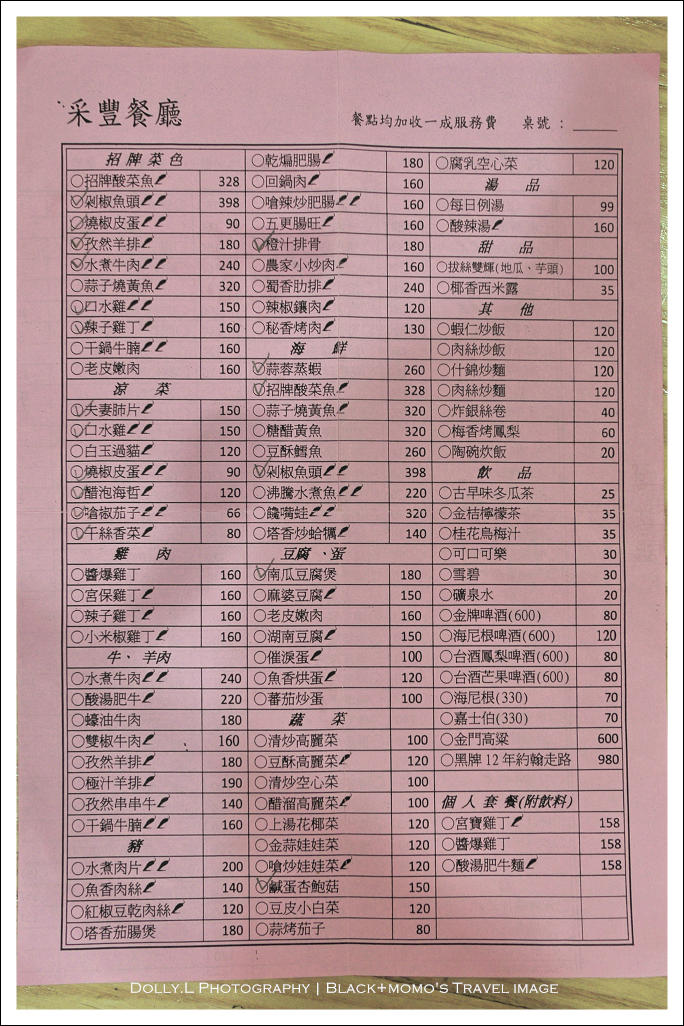 采豐餐廳
餐點均加收一成服務費 桌號：
招牌菜色
○招牌酸菜魚 328
○剁椒魚頭 398
○燒椒皮蛋 90
○孜然羊排 180
○水煮牛肉 240
○蒜子燒黃魚 320
○口水雞 150
○辣子雞丁 160
○干鍋牛腩 160
○老皮嫩肉 160
涼菜
○夫妻肺片 150
○口水雞 150
○白玉過貓 120
○燒椒皮蛋 90
○醋泡海哲 120
○嗆椒茄子 66
○干絲香菜 80
雞肉
○醬爆雞丁 160
○宮保雞丁 160
○辣子雞丁 160
○小米椒雞丁 160
牛、羊肉
○水煮牛肉 240
○酸湯肥牛 220
○蠔油牛肉 180
○雙椒牛肉 160
○孜然羊排 180
○極汁羊排 190
○孜然串串牛 140
○干鍋牛腩 160
豬
○水煮肉片 200
○魚香肉絲 140
○紅椒豆乾肉絲 120
○塔香茄腸煲 180
○乾煸肥腸 180
○回鍋肉 160
○嗆辣炒肥腸 160
○五更腸旺 160
○橙汁排骨 180
○農家小炒肉 160
○蜀香肋排 240
○辣椒鑲肉 120
○秘香烤肉 130
海鮮
○蒜蓉蒸蝦 260
○招牌酸菜魚 328
○蒜子燒黃魚 320
○糖醋黃魚 320
○豆酥鱈魚 260
○剁椒魚頭 398
○沸騰水煮魚 220
○饞嘴蛙 320
○塔香炒蛤蠣 140
豆腐、蛋
○南瓜豆腐煲 180
○麻婆豆腐 150
○老皮嫩肉 160
○湖南豆腐 150
○催淚蛋 100
○魚香烘蛋 120
○蕃茄炒蛋 100
蔬菜
○清炒高麗菜 100
○豆酥高麗菜 120
○清炒空心菜 100
○醋溜高麗菜 100
○上湯花椰菜 120
○金蒜娃娃菜 120
○嗆炒娃娃菜 120
○鹹蛋杏鮑菇 150
○豆皮小白菜 120
○蒜烤茄子 80
○腐乳空心菜 120
湯品
○每日例湯 99
○酸辣湯 160
甜品
○拔絲雙輝(地瓜、芋頭) 100
○椰香西米露 35
其他
○蝦仁炒飯 120
○肉絲炒飯 120
○什錦炒麵 120
○肉絲炒麵 120
○炸銀絲卷 40
○梅香烤鳳梨 60
○陶碗炊飯 20
飲品
○古早味冬瓜茶 25
○金桔檸檬茶 35
○桂花烏梅汁 35
○可口可樂 30
○雪碧 30
○礦泉水 20
○金牌啤酒(600) 80
○海尼根啤酒(600) 120
○台酒鳳梨啤酒(600) 80
○台酒芒果啤酒(600) 80
○海尼根(330) 70
○嘉士伯(330) 70
○金門高粱 600
○黑牌12年約翰走路 980
個人套餐(附飲料)
○宮寶雞丁 158
○醬爆雞丁 158
○酸湯肥牛麵 158
DOLLY.L PHOTOGRAPHY | BLACK+MOMO'S TRAVEL IMAGE